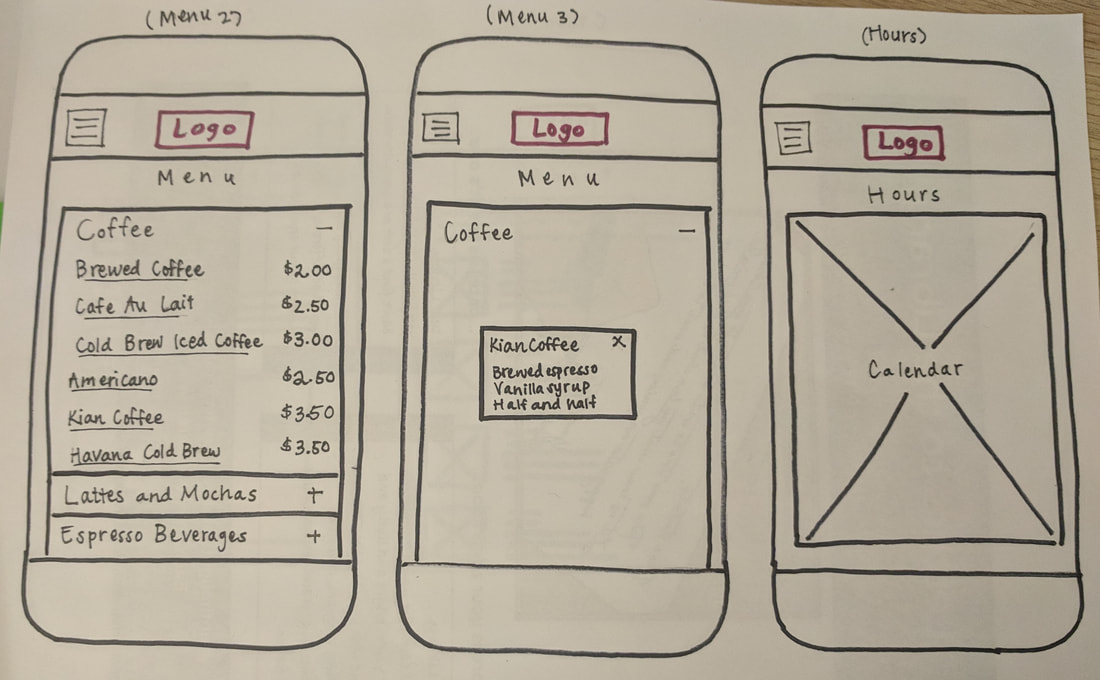 (Menu 2)
Logo
Menu
Coffee −
Brewed Coffee $2.00
Cafe Au Lait $2.50
Cold Brew Iced Coffee $3.00
Americano $2.50
Kian Coffee $3.50
Havana Cold Brew $3.50
Lattes and Mochas +
Espresso Beverages +
(Menu 3)
Logo
Menu
Coffee −
Kian Coffee X
Brewed espresso
Vanilla syrup
Half and half
(Hours)
Logo
Hours
Calendar